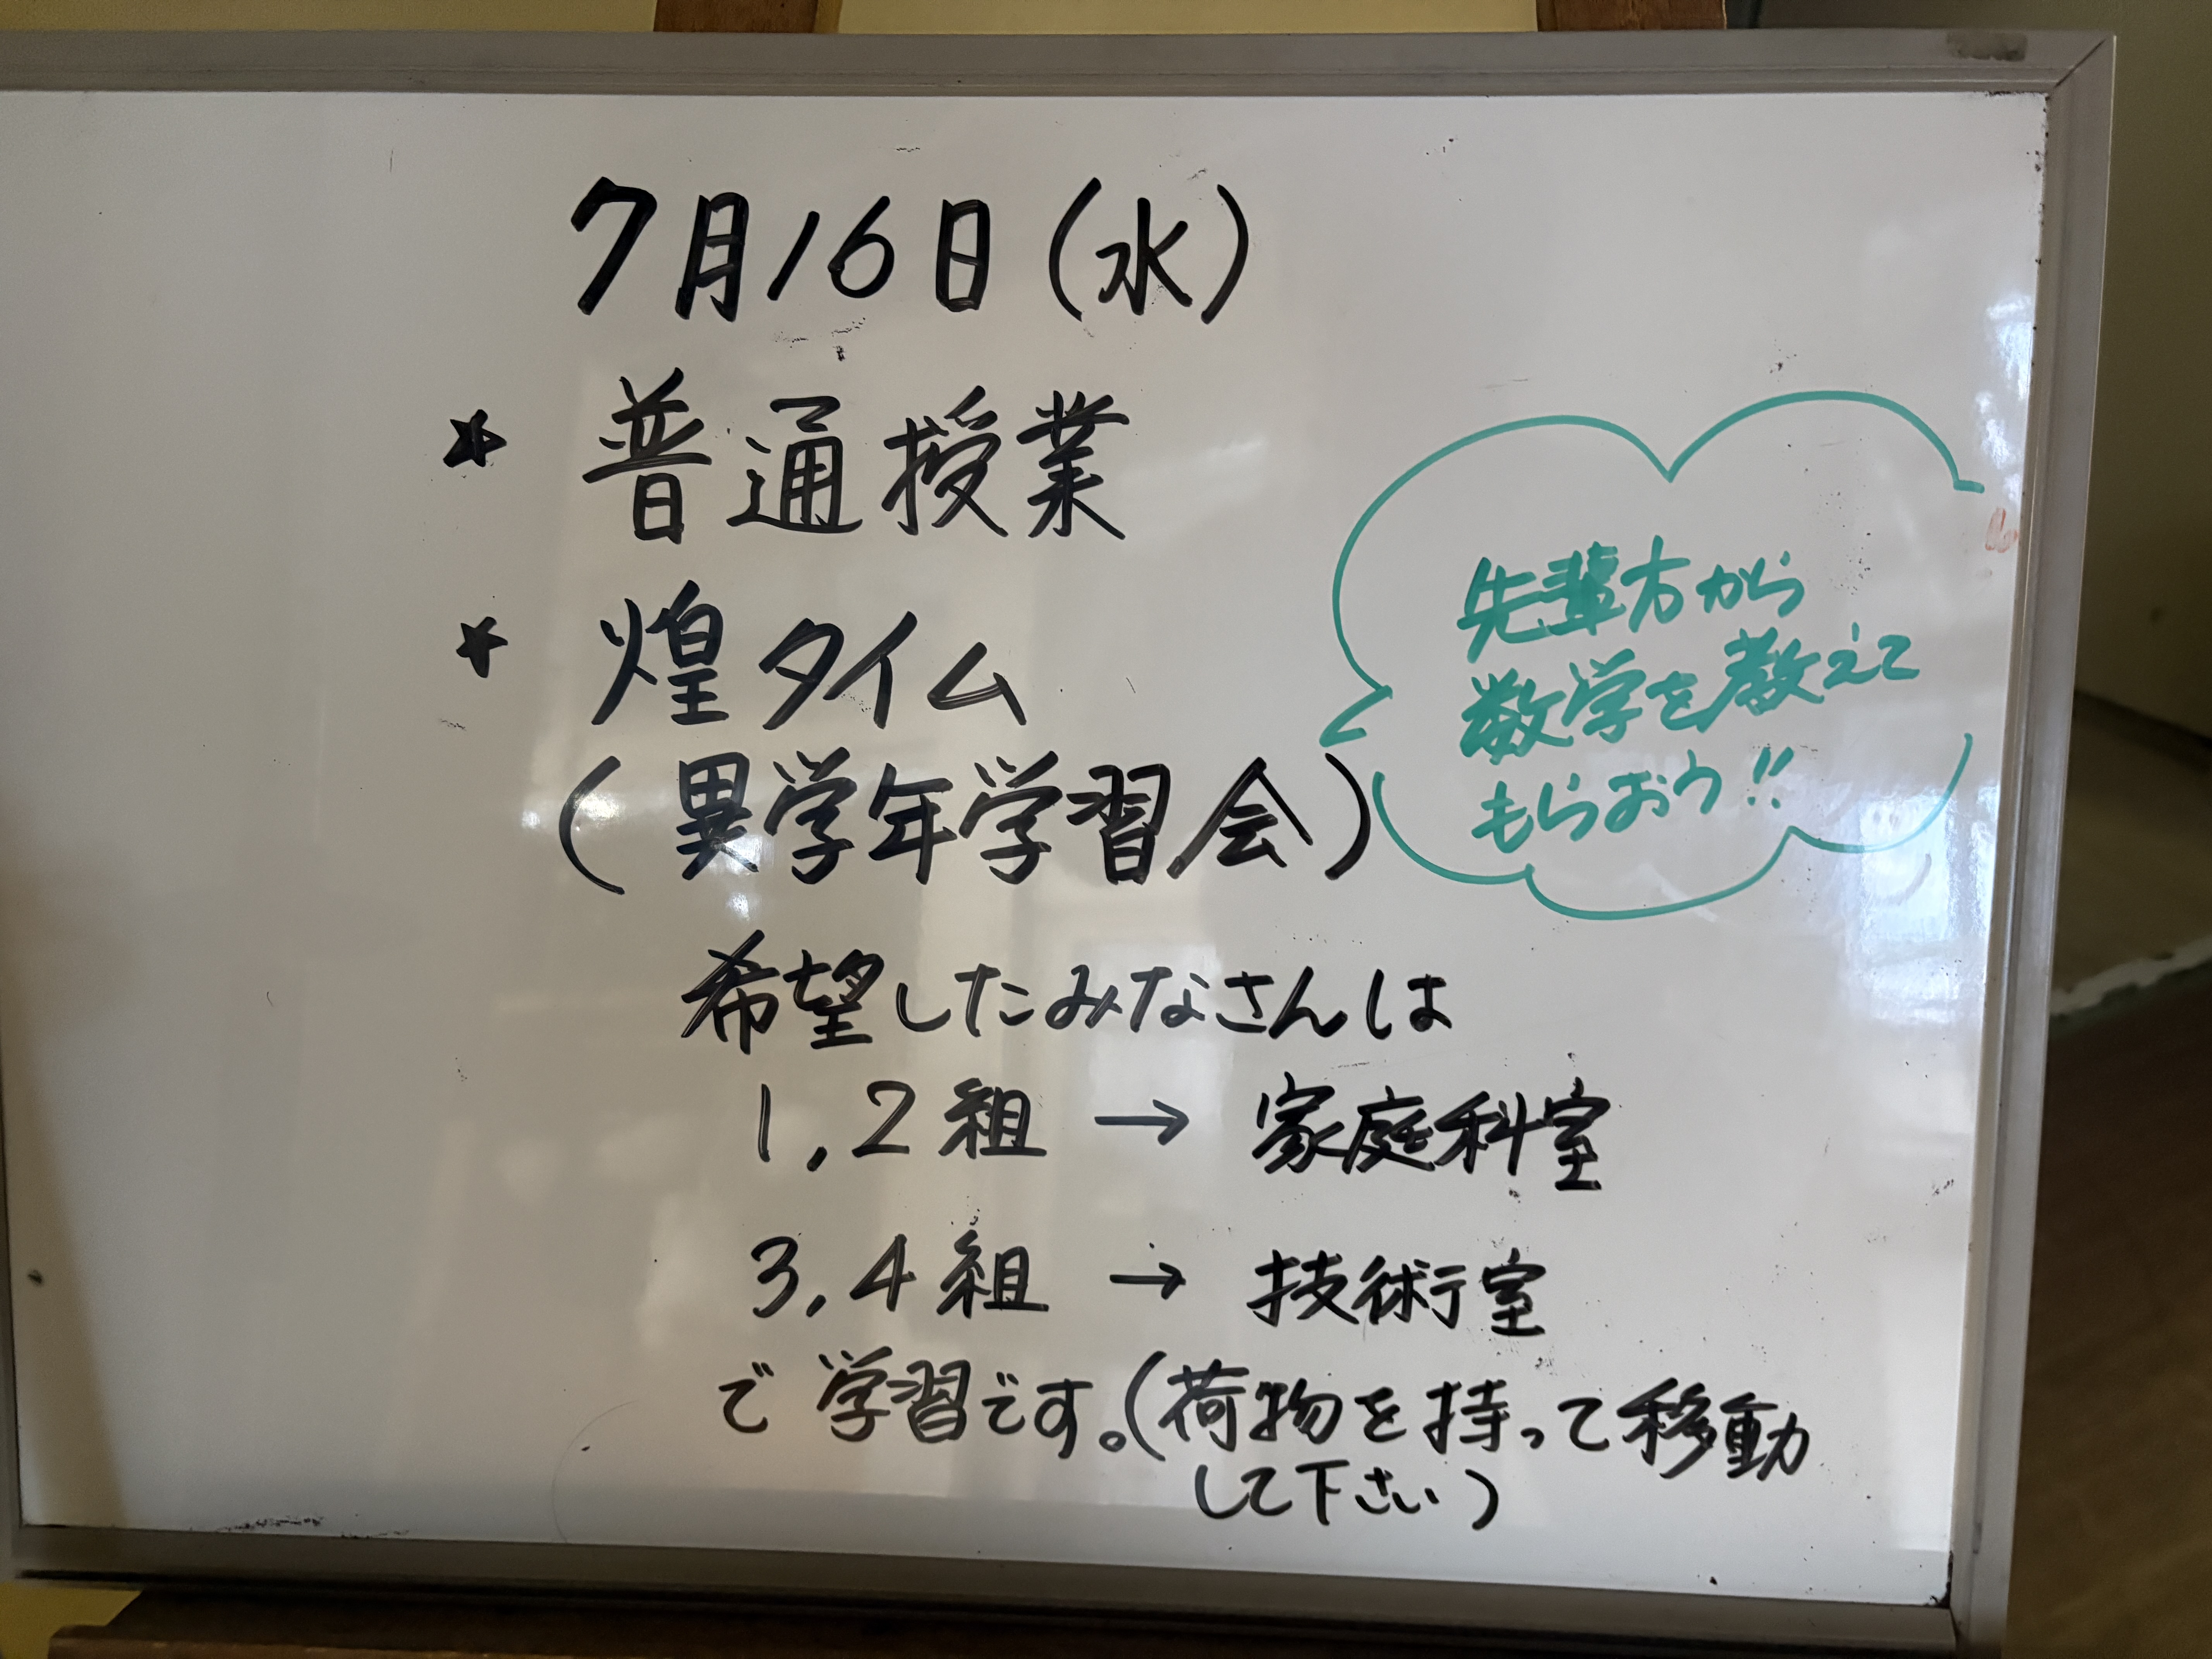 7月16日(水)
★ 普通授業
★ 煌タイム
(異学年学習会)
先輩方から
数学を教えて
もらおう!!
希望したみなさんは
1,2組 → 家庭科室
3,4組 → 技術室
で 学習です。(荷物を持って移動
して下さい)